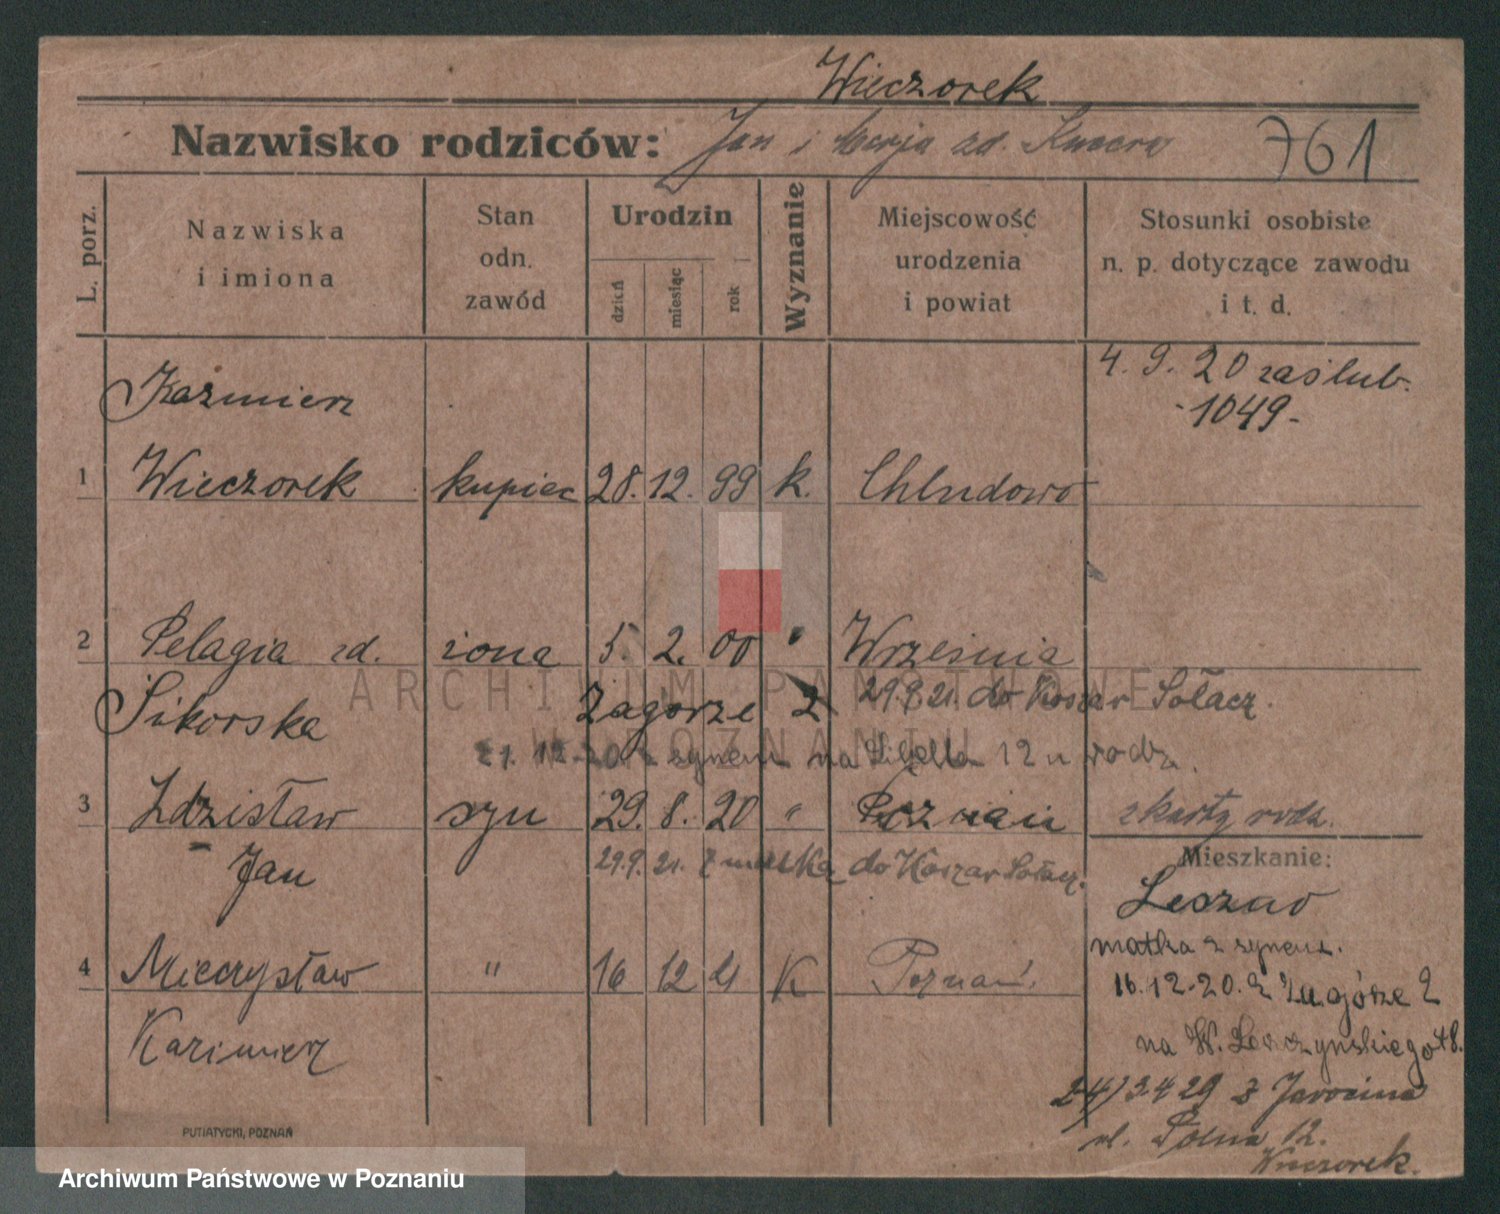 Wieczorek
Nazwisko rodziców: Jan i zd. 761
L. porz.
Nazwiska
i imiona
Stan
odn.
zawód
Urodzin
dzień
miesiąc
rok
Wyznanie
Miejscowość
urodzenia
i powiat
Stosunki osobiste
n. p. dotyczące zawodu
i t. d.
4. 9. 20 zaślub.
-1049-
Kazmierz
1 Wieczorek kupiec 28. 12. 99 k. Chludowo
2 Pelagia zd. żona 5. 2. 00 " Września
Sikorska Zagórze 2 29.9.21. do Koszar Sołacz.
21. 12. 20 z synem na 12 u rodz.
3 Zdzisław syn 29. 8. 20 " Poznań z karty rodz.
Jan 29.9.21. z matką do Koszar Sołacz.
Mieszkanie:
Leszno
matka z synem.
4 Mieczysław " 16 12 21 K Poznań.
16.12.20. z Zagórze 2
Kazimierz
na W. Leszczyńskiego 48.
24/3 4 29 z Jarocina
ul. Polna 12.
Wieczorek.
PUTIATYCKI, POZNAŃ
ARCHIWUM PAŃSTWOWE
W POZNANIU
Archiwum Państwowe w Poznaniu